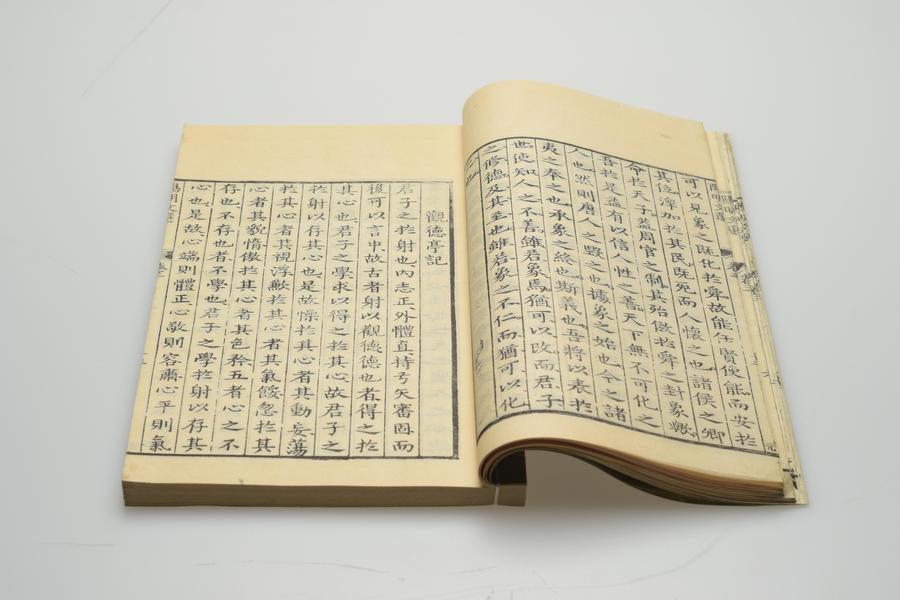 可以見象之旣化於舜故能任賢使能而安於
其位澤加於其民旣死而人懷之也諸侯之卿
命於天子蓋周官之制其殆倣於舜之封象歟
吾於是益有以信人性之善天下無不可化之
人也然則唐人之毀之也據象之始也今之諸
夷之奉之也承象之終也斯義也吾將以表於
世使知人之不善雖若象焉猶可以改而君子
之修德及其至也雖若象之不仁而猶可以化
觀德亭記
君子之於射也內志正外體直持弓矢審固而
後可以言中故古者射以觀德德也者得之於
其心也君子之學求以得之於其心故君子之
於射以存其心也是故懆於其心者其動妄蕩
於其心者其視浮歉於其心者其氣餒忽於其
心者其貌惰傲於其心者其色矜五者心之不
存也不存也者不學也君子之學於射以存其
心也是故心端則體正心敬則容肅心平則氣
陽明文選